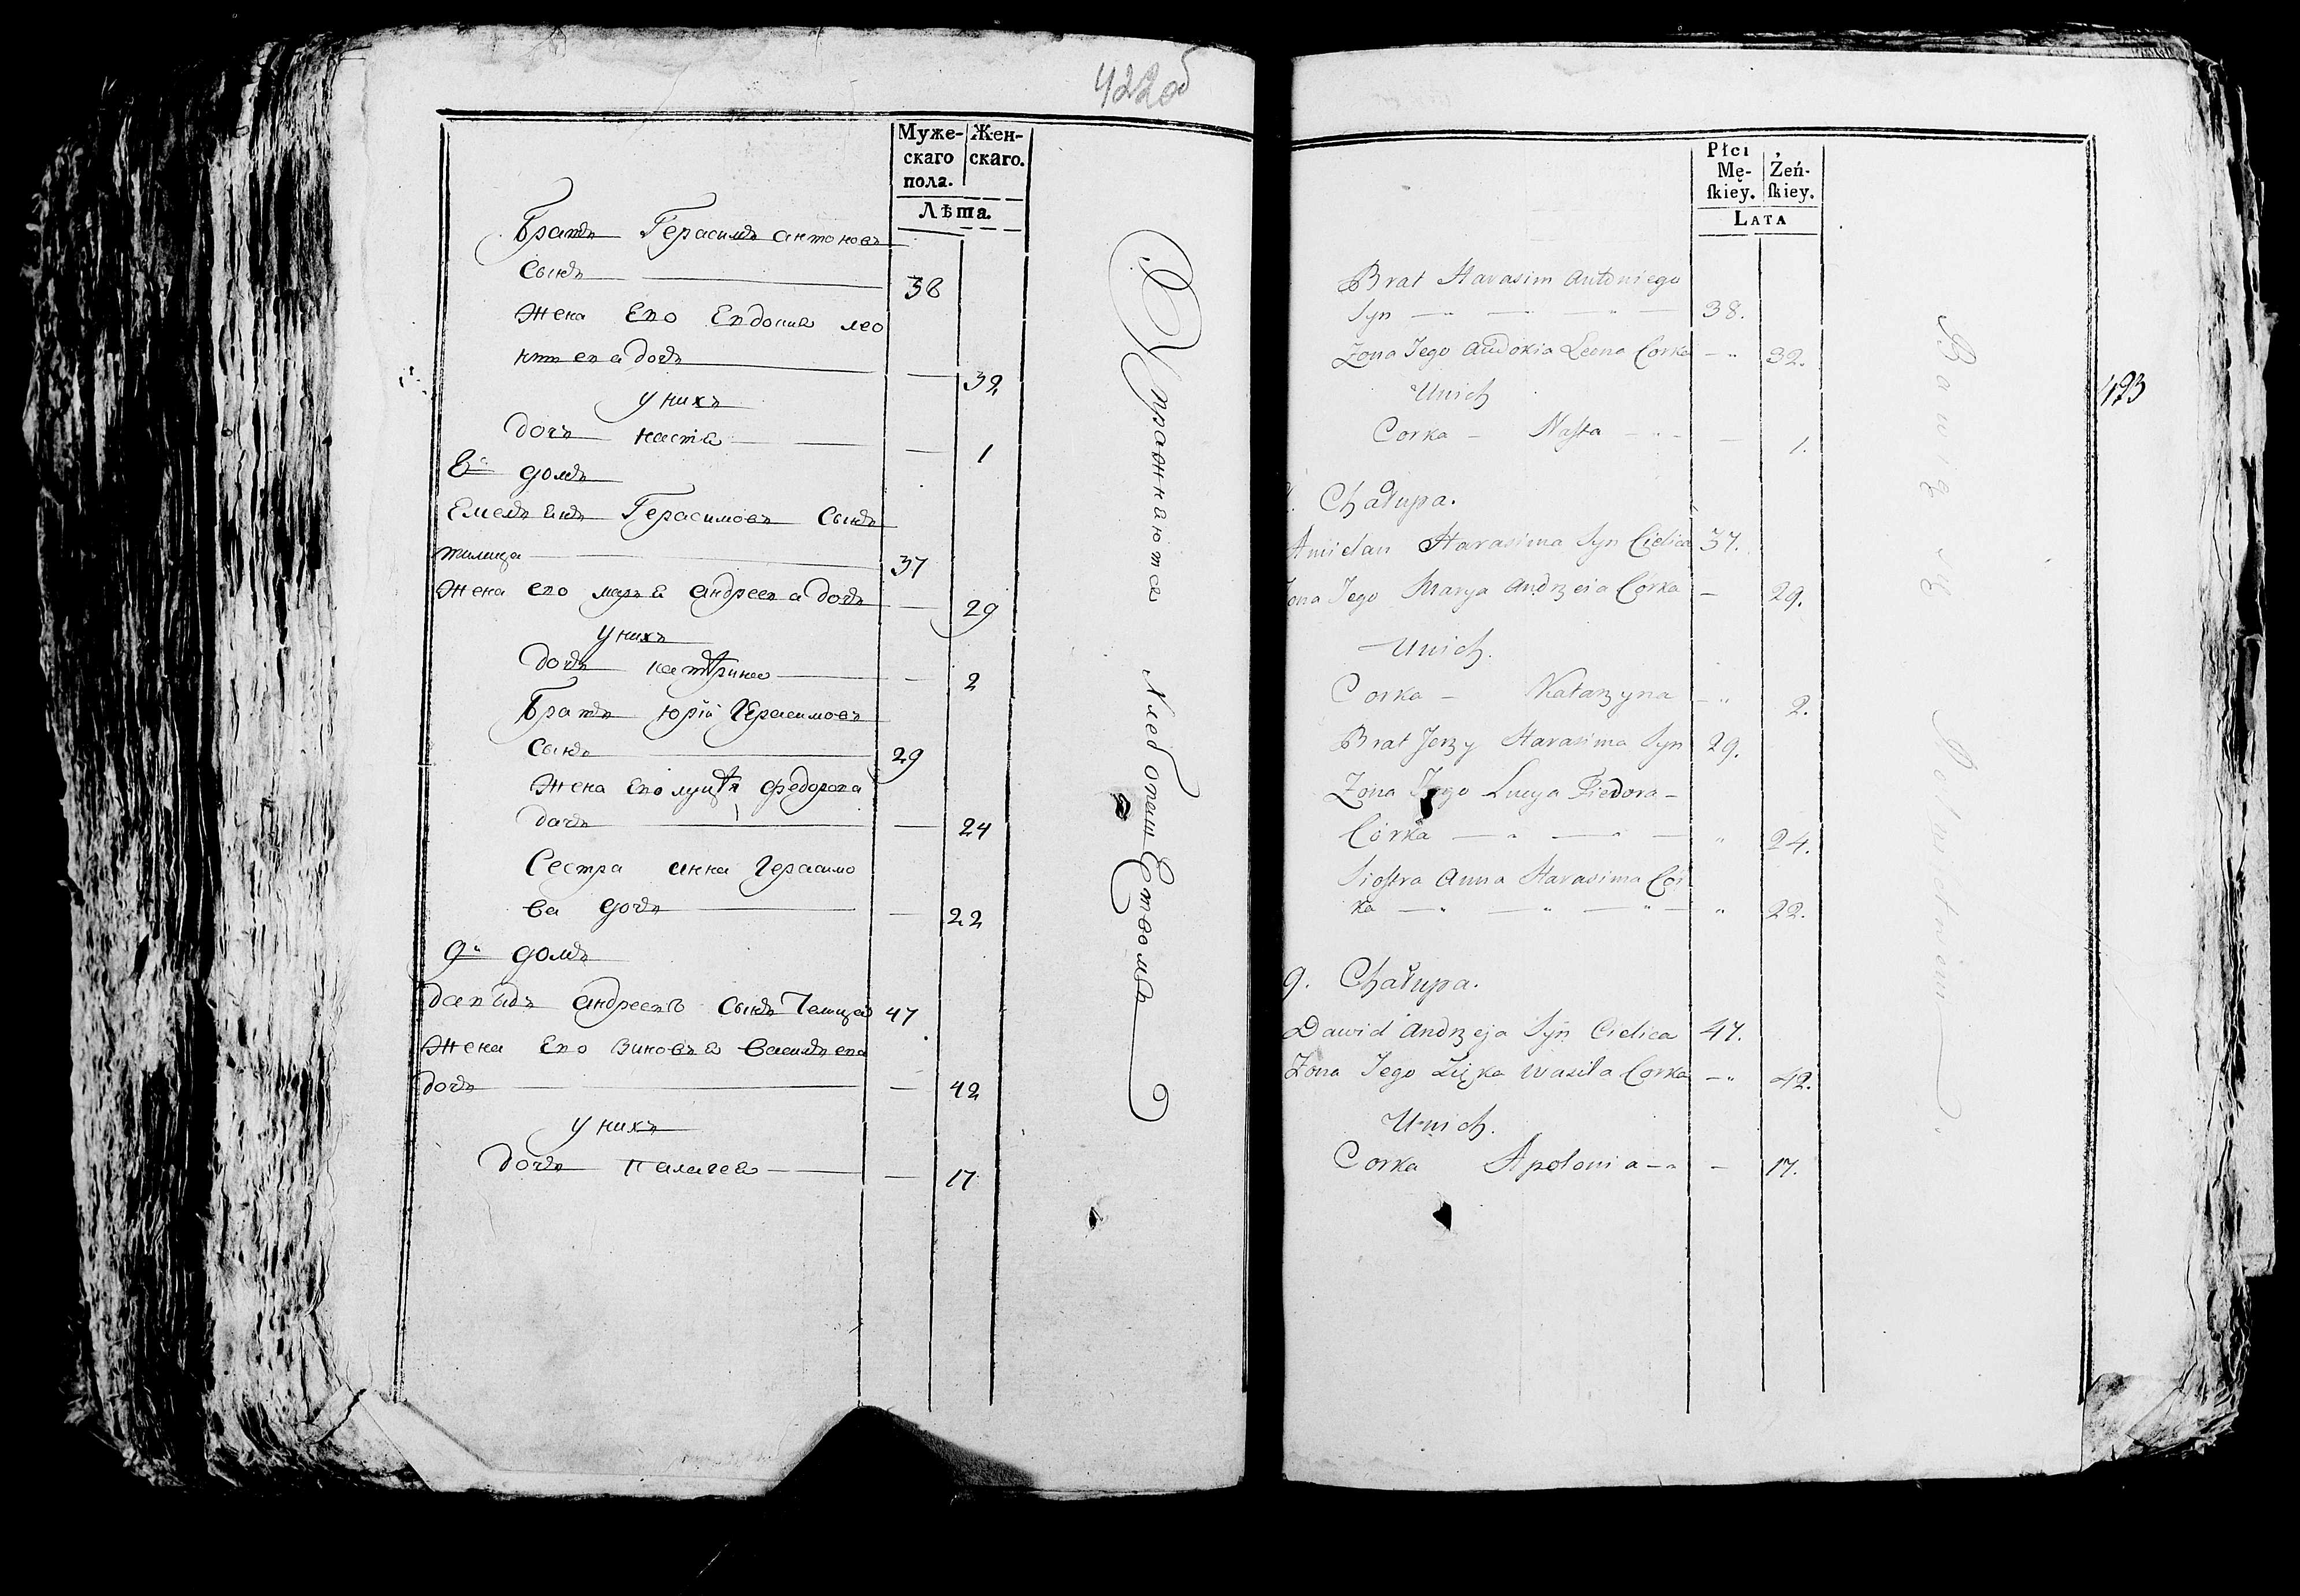 422об
Муже- Жен-
скаго скаго.
пола.
Лѣта.
Братъ Герасимъ антоновъ
сынъ 38
Жена Его Евдокия лео
нтева дочь 32
у нихъ
дочь настя 1
8й домъ
Емельянъ Герасимовъ Сынъ
телица 37
Жена его марья андреева дочь 29
у нихъ
дочь катѣрина 2
Братъ юрій Герасимовъ
сынъ 29
Жена Его луцѣя федорова
дочь 24
Сестра анна Герасимо
ва дочь 22
9й домъ
давыдъ андреевъ сынъ Телица 47
Жена Его зиновья василева
дочь 42
у нихъ
дочь палагея 17
Упражняются Хлебопашествомъ
Płci
Mę- Żeń-
ſkiey. ſkiey.
LATA
Brat Harasim Antoniego
Syn 38.
Żona Jego Audokia Leona Corka 32.
Unich
Corka Nasta 1.
Chałupa.
Amielan Harasima Syn Cielica 37.
ona Jego Marya Andrzeia Córka 29.
Unich.
Corka Katarzyna 2.
Brat Jerzy Harasima Syn 29.
Żona Jego Lucya Fiedora
Córka 24.
Siostra Anna Harasima Cór
ka 22.
9. Chałupa.
Dawid Andrzeja Syn Cielica 47.
Żona Jego Wasila Corka 42.
Unich.
Corka Apolonia 17.
Bawią się Rolnictwem
423